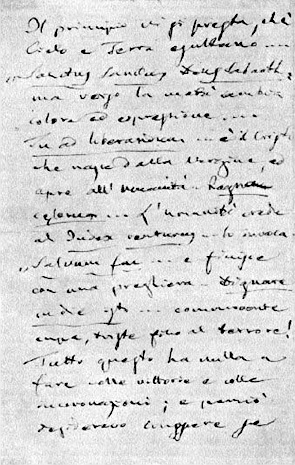 Il principio vi si prega, chè
Cielo e Terra esultano ....
"Sanctus Sanctus Deus Sabaoth
ma verso la metà cambia
colore ed espressione ....
Tu ad liberandum ... è il Cristo
che nasce dalla Vergine, ed
apre all'Umanità Regnum
celorum ... L'umanità crede
al Judex venturus - lo invoca
"Salvum fac ... e finisce
con una preghiera - Dignare
in die isto ... commovente
cupa, triste fino al terrore!
Tutto questo ha nulla a
fare colle vittorie e colle
incoronazioni; e perciò
desideravo sappere se